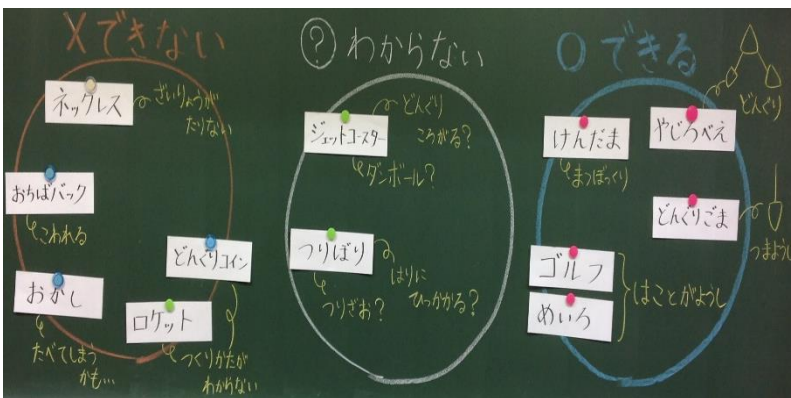 Xできない
ネックレス
ざいりょうが
たりない
おちばバック
こわれる
どんぐりコイン
おかし
たべてしまう
かも…
ロケット
つくりかたが
わからない
?わからない
ジェットコースター
どんぐり
ころがる?
ダンボール?
つりぼり
つりざお?
はりに
ひっかかる?
Oできる
けんだま
まつぼっくり
やじろべえ
どんぐり
どんぐりごま
つまようじ
ゴルフ
めいろ
はことがようし